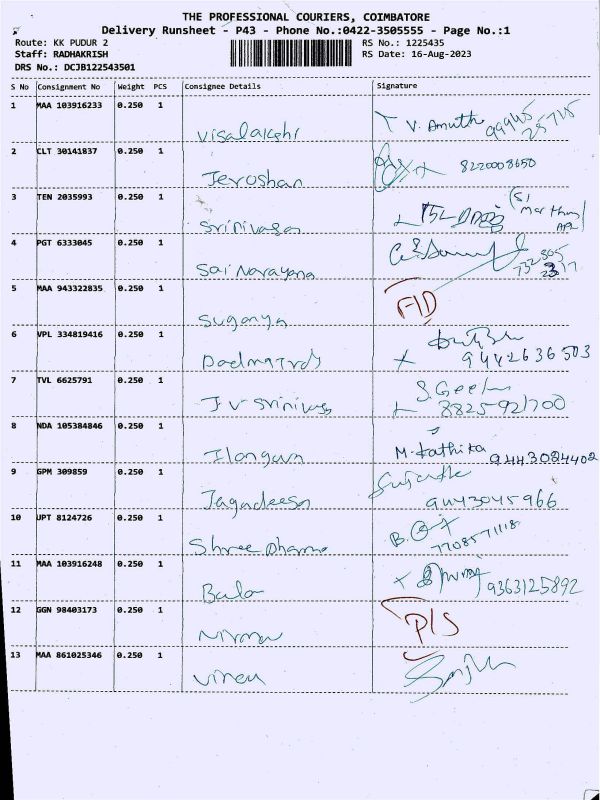 THE PROFESSIONAL COURIERS, COIMBATORE
Delivery Runsheet - P43 - Phone No.:0422-3505555 - Page No.:1
Route: KK PUDUR 2 RS No.: 1225435
Staff: RADHAKRISH RS Date: 16-Aug-2023
DRS No.: DCJB122543501
S No Consignment No Weight PCS Consignee Details Signature
1 MAA 103916233 0.250 1 Visalakshi V. Amutha 99945 25715
2 CLT 30141837 0.250 1 Jeroshan 8220008650
3 TEN 2035993 0.250 1 Srinivasan
4 PGT 6333045 0.250 1 Sai Narayana
5 MAA 943322835 0.250 1 Suganya F/D
6 VPL 334819416 0.250 1 9442636503
7 TVL 6625791 0.250 1 J v Srinivas S. Geetha 8825921700
8 NDA 105384846 0.250 1 Ilangovan M. Kathika 9443084402
9 GPM 309859 0.250 1 Jagadeesan Sujatha 9443045966
10 JPT 8124726 0.250 1 Shree Dharma 7708571118
11 MAA 103916248 0.250 1 Bala 9363125892
12 GGN 98403173 0.250 1 Nirmal P/S
13 MAA 861025346 0.250 1 Vineu